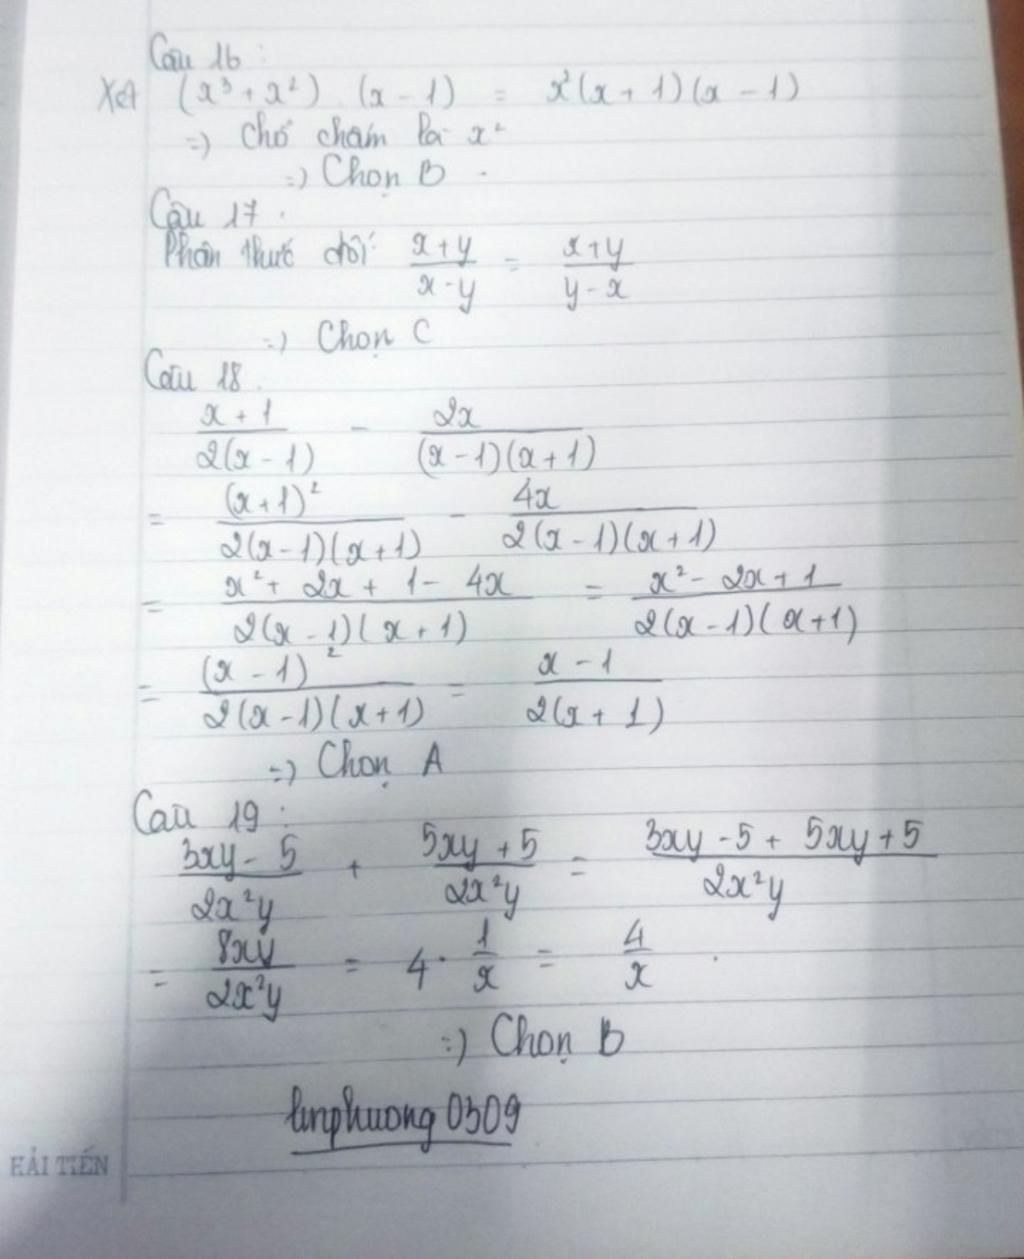 Câu 16:
Xét (x³ + x²) (x - 1) = x²(x + 1)(x - 1)
=) Chỗ chấm là x²
=) Chọn B.
Câu 17.
Phân thức đối (x + y)/(x - y) = (x + y)/(y - x)
=) Chọn C
Câu 18.
(x + 1)/(2(x - 1)) - 2x/((x - 1)(x + 1))
= (x + 1)²/(2(x - 1)(x + 1)) - 4x/(2(x - 1)(x + 1))
= (x² + 2x + 1 - 4x)/(2(x - 1)(x + 1)) = (x² - 2x + 1)/(2(x - 1)(x + 1))
= (x - 1)²/(2(x - 1)(x + 1)) = (x - 1)/(2(x + 1))
=) Chọn A
Câu 19:
(3xy - 5)/(2x²y) + (5xy + 5)/(2x²y) = (3xy - 5 + 5xy + 5)/(2x²y)
= 8xy/(2x²y) = 4 · 1/x = 4/x.
=) Chọn B
linphuong 0309
HẢI TIẾN